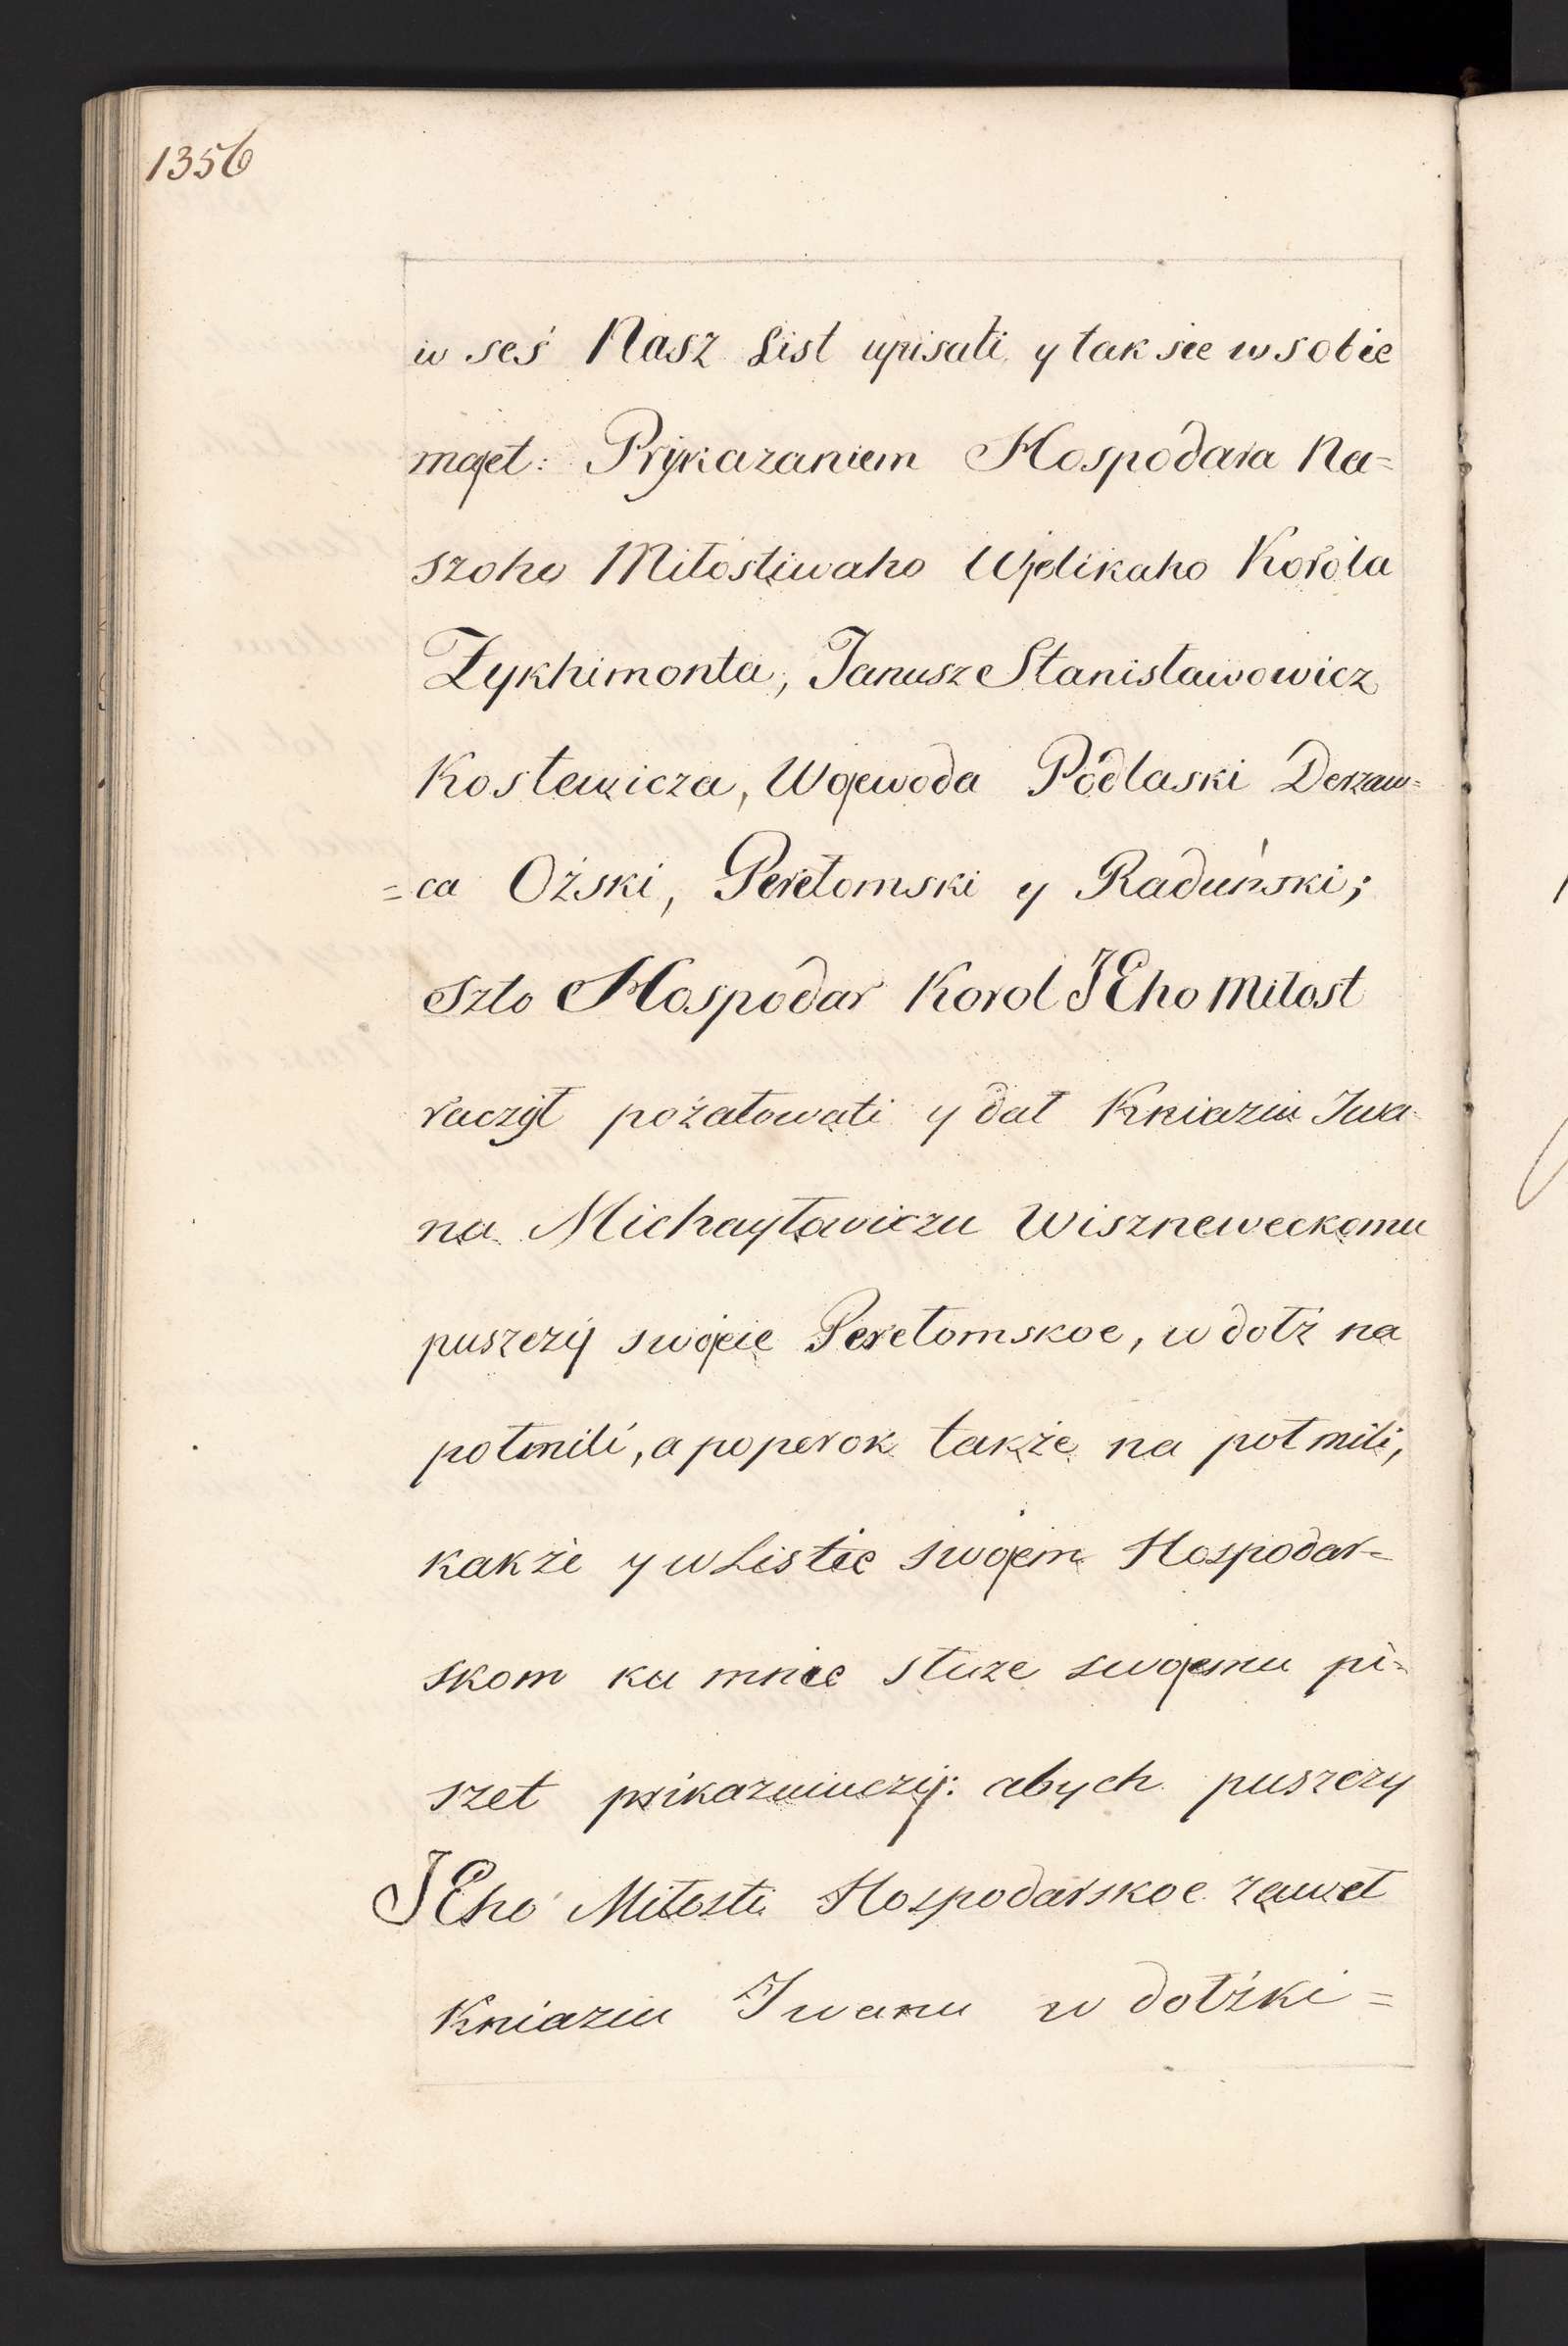 1356
w seś Nasz List upisati y tak sie w sobie
majet: Prykazaniem Hospodara Na=
szoho Miłostiwaho Wjelikaho Korola
Zykhimonta, Janusz Stanisławowicz
Kostewicza, Wojewoda Podlaski Derzaw=
=ca Ożski, Perełomski y Raduński;
szto Hospodar Korol JEho Miłost
raczył pożałowati y dał Kniaziu Iwa-
na Michayłowiczu Wiszneweckomu
puszczy swojeie Perełomskoe, w dołż na
połmili, a poperok także na poł mili,
kakże y w Listie swojem Hospodar=
skom ku mnie słuze swojemu pi=
szet prikazuiuczy: abych puszczy
JEho Miłosti Hospodarskoe zawel
Kniaziu Iwanu w dołżki=